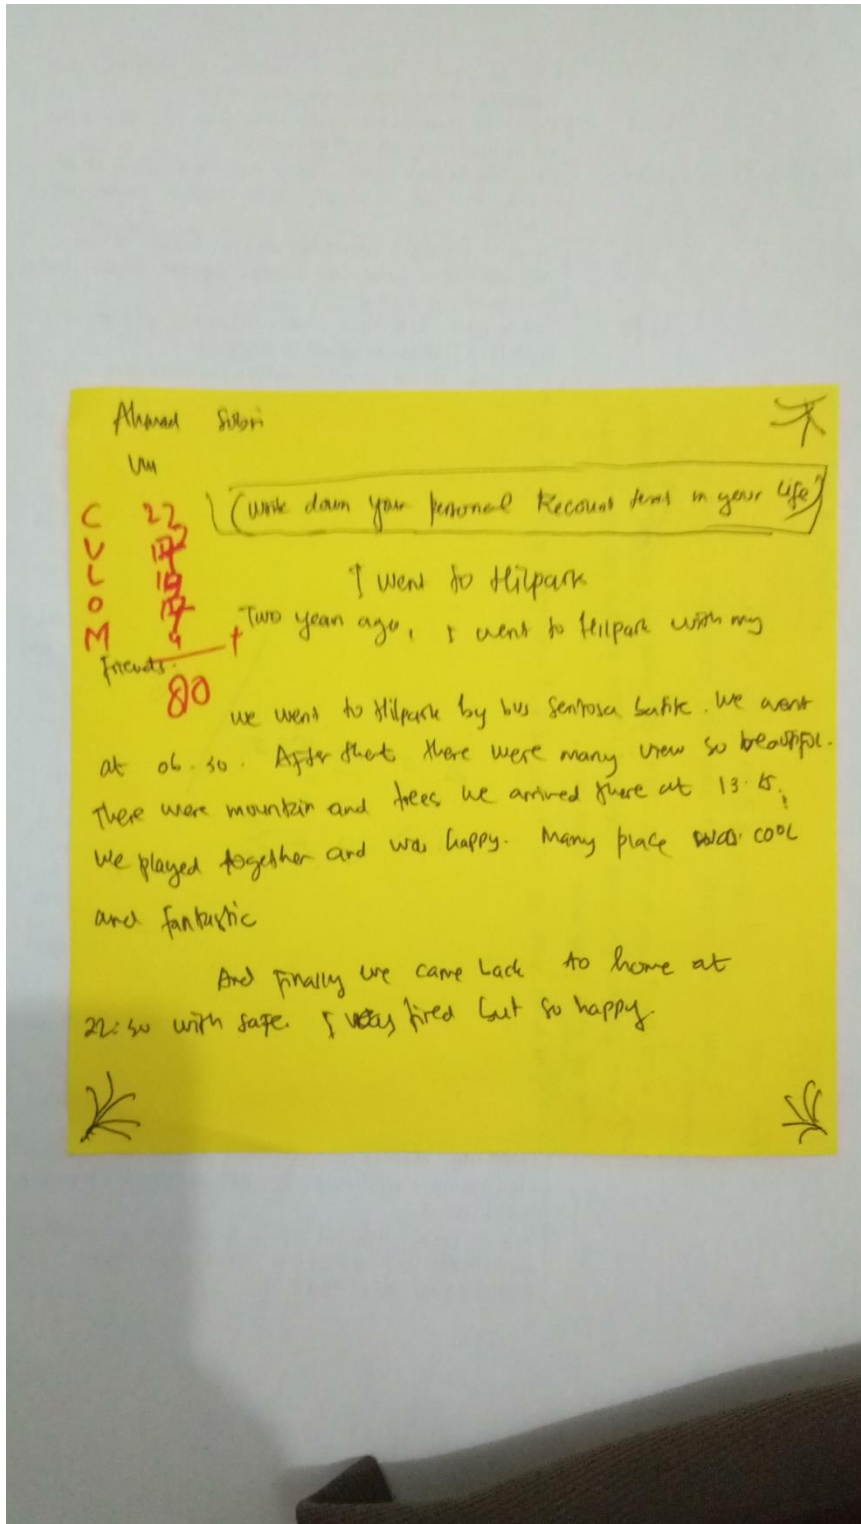 Ahmad Sobri
(Write down your personal Recount text in your life)
C 22
V
L
O
M
80
I went to Hilpark
Two year ago, I went to Hillpark with my
friends.
we went to Hilpark by bus Sentosa batik. We went
at 06.30. After that there were many view so beautiful.
There were mountain and trees we arrived there at 13.15.
We played together and was happy. Many place was cool
and fantastic
And finally we came back to home at
22.30 with safe. I was tired but so happy.